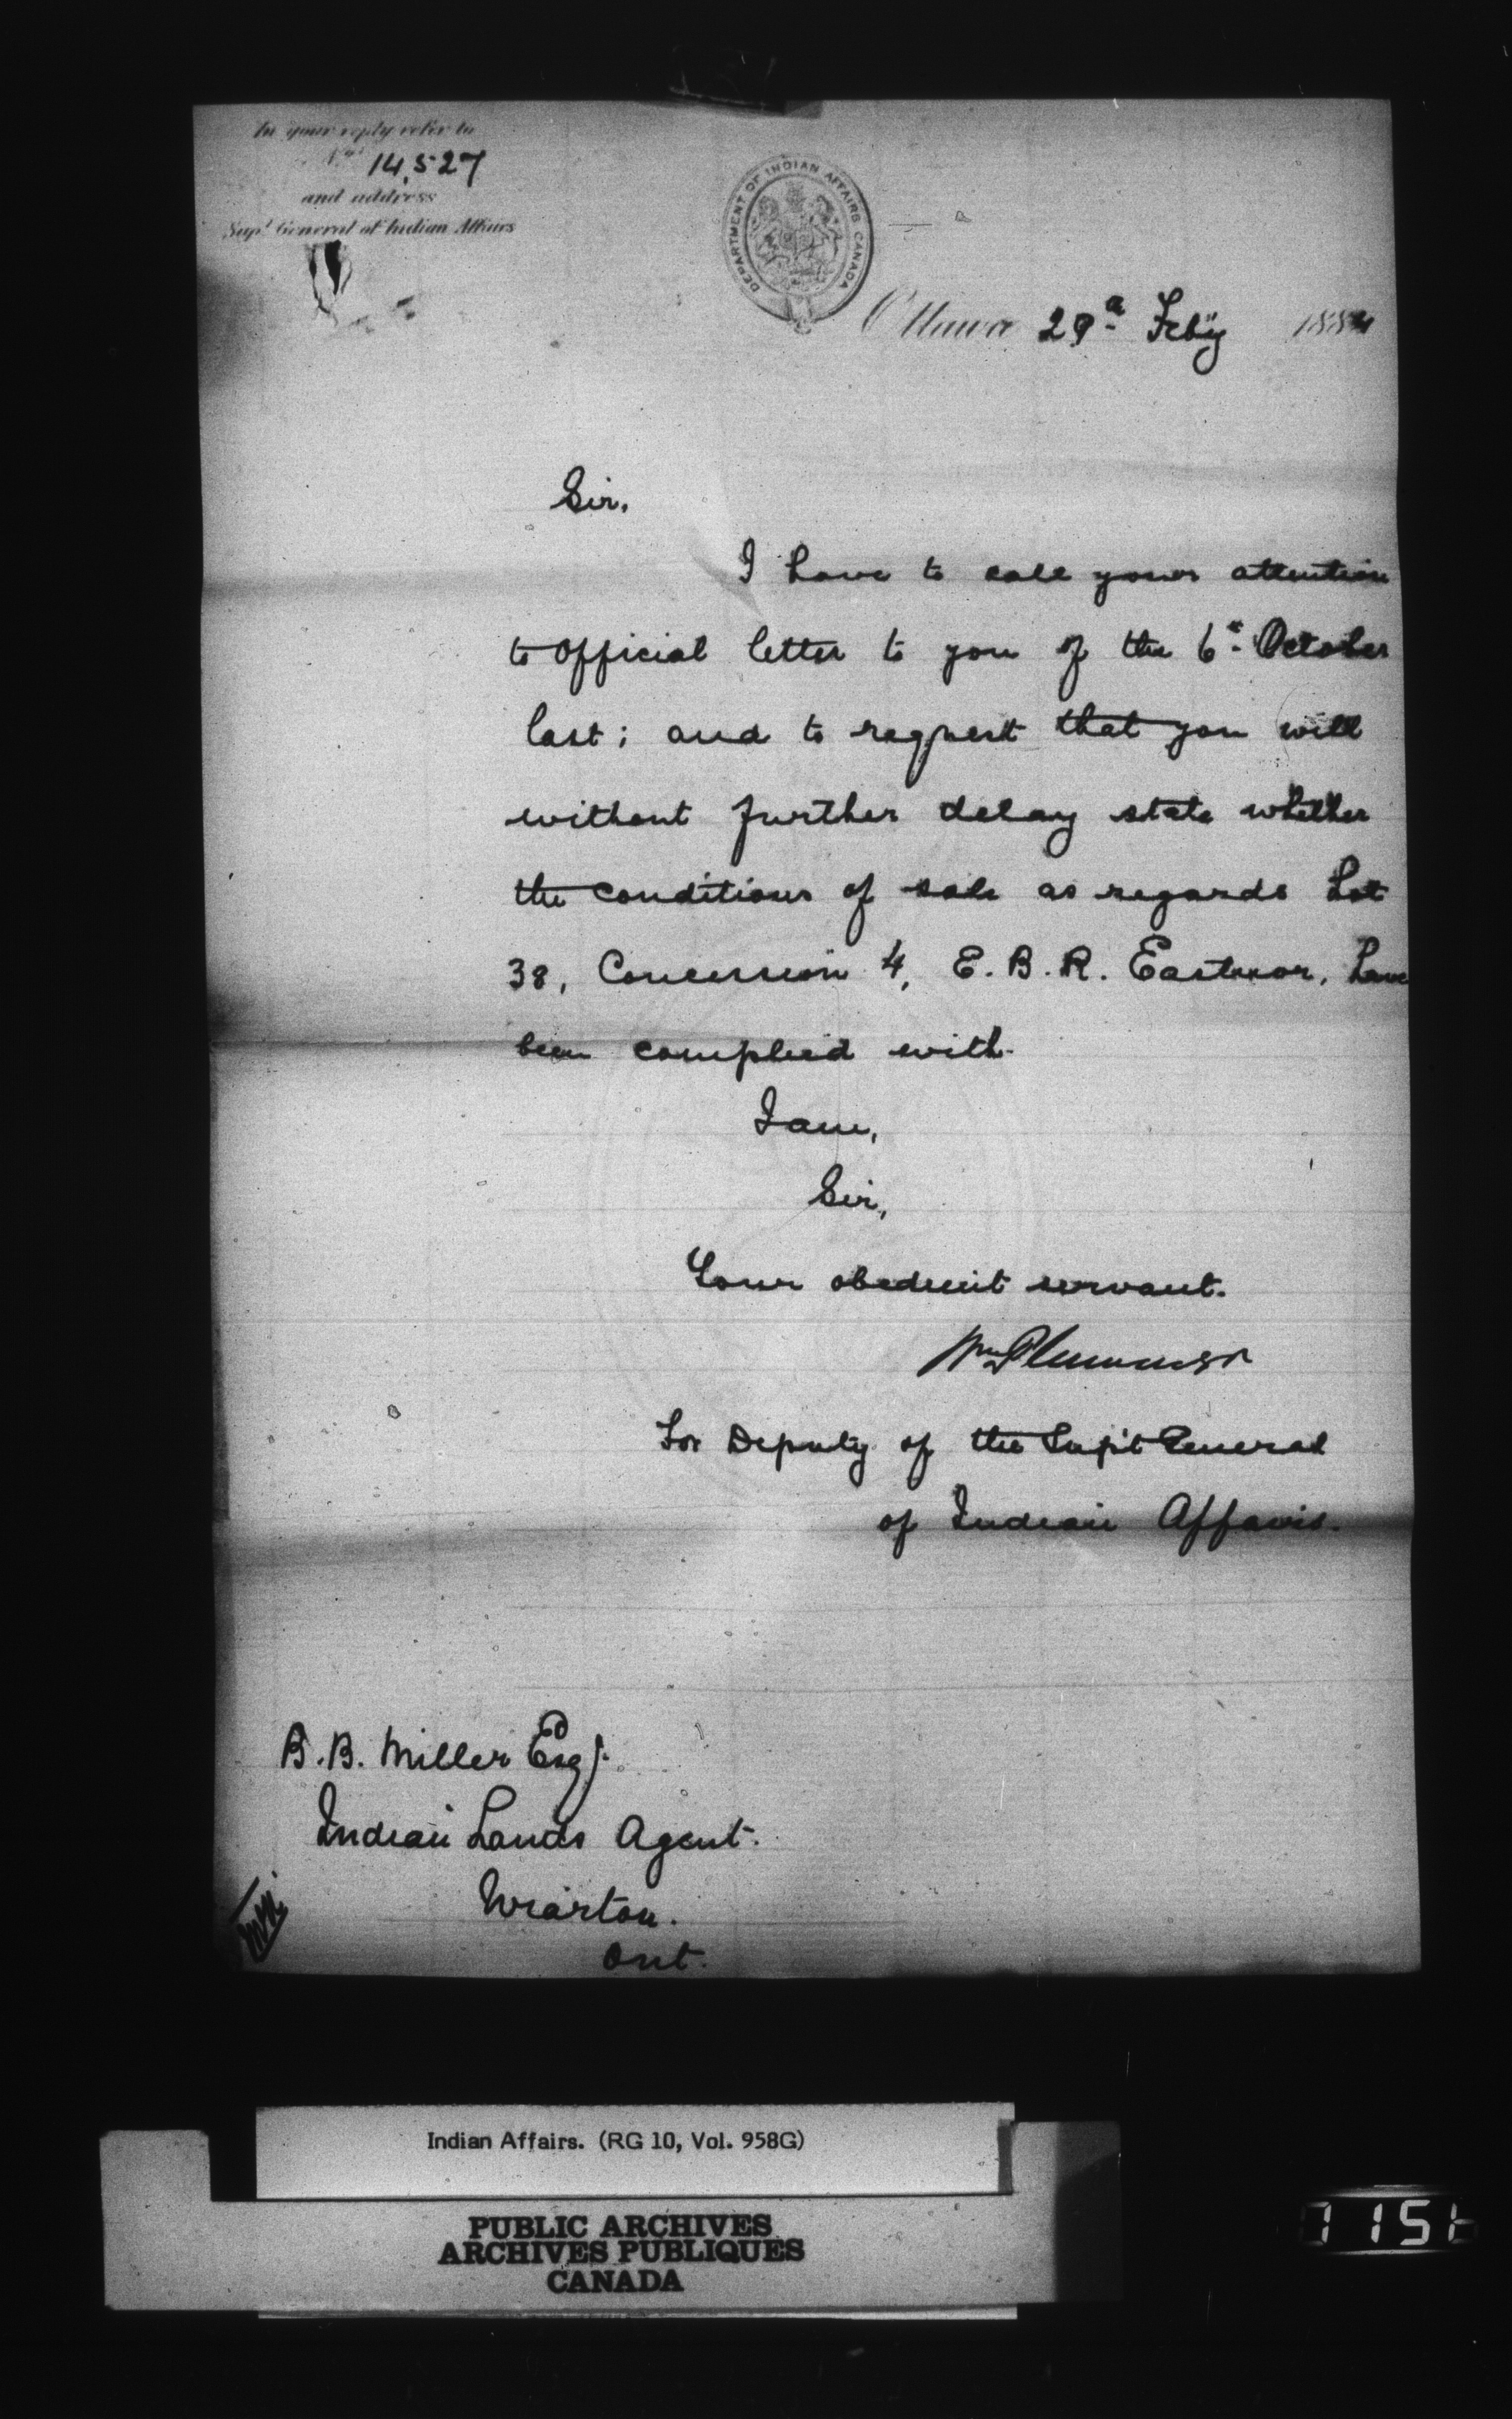 In your reply refer to
No. 14,527
and address
Supt. General of Indian Affairs
DEPARTMENT OF INDIAN AFFAIRS CANADA
Ottawa 29th Feb'y 1884
Sir,
I have to call your attention
to Official letter to you of the 6th October
last; and to request that you will
without further delay state whether
the conditions of sale as regards Lot
38, Concession 4, E. B. R. Eastnor, have
been complied with.
I am,
Sir,
Your obedient servant.
Wm Plummer
For Deputy of the Supt General
of Indian Affairs.
B. B. Miller Esq.
Indian Lands Agent.
Wiarton.
Ont.
Indian Affairs. (RG 10, Vol. 958G)
PUBLIC ARCHIVES
ARCHIVES PUBLIQUES
CANADA